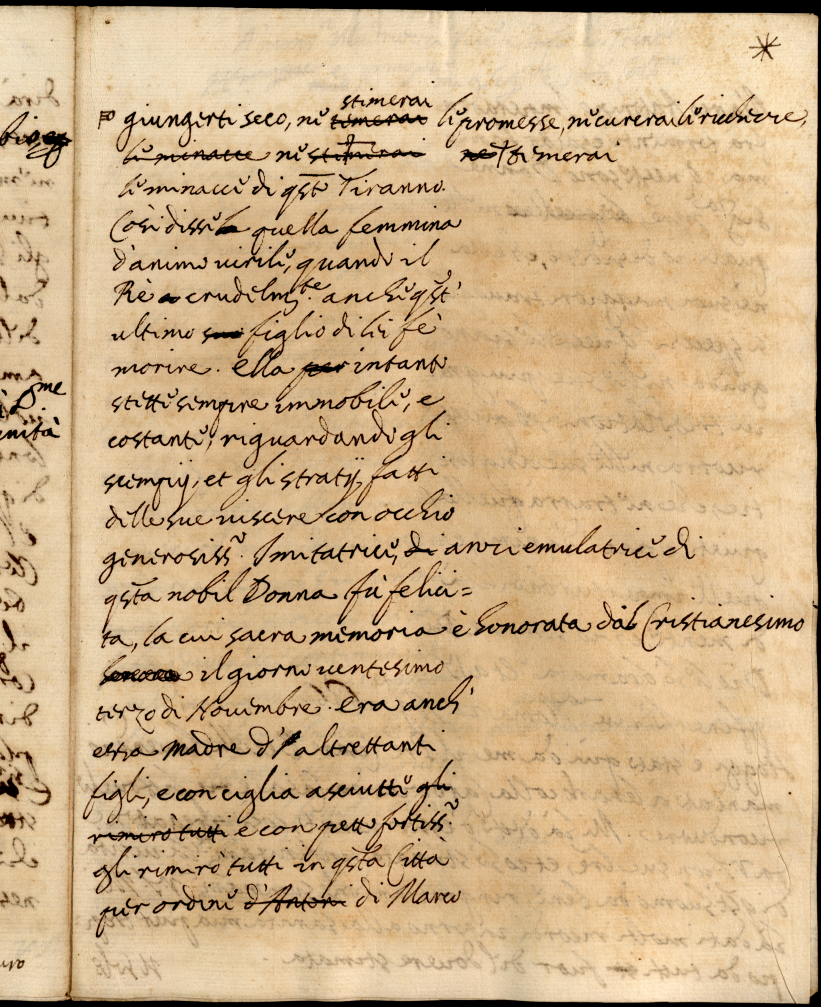 stimerai
giungerti seco, ne temerai le promesse, ne curerai le ricchezze,
le minacce ne stimerai ne temerai
le minacce di qsto Tiranno.
Così disse la quella femmina
d'animo virile, quando il
Rè a crudelmte. anche qsto
ultimo suo figlio di lei fè
morire. Ella per intanto
stette sempre immobile, e
costante, riguardando gli
scempij, et gli stratij, fatti
delle sue viscere con occhio
generosisso. Imitatrice, di anzi emulatrice di
qsta nobil Donna fù felici=
ta, la cui sacra memoria è honorata dal Cristianesimo
il giorno ventesimo
terzo di Novembre. Era anch'
essa madre d' altrettanti
figli, e con ciglia asciutte gli
rimirò tutti e con petto fortisso
gli rimirò tutti in qsta Città
per ordine d'Anton di Marco